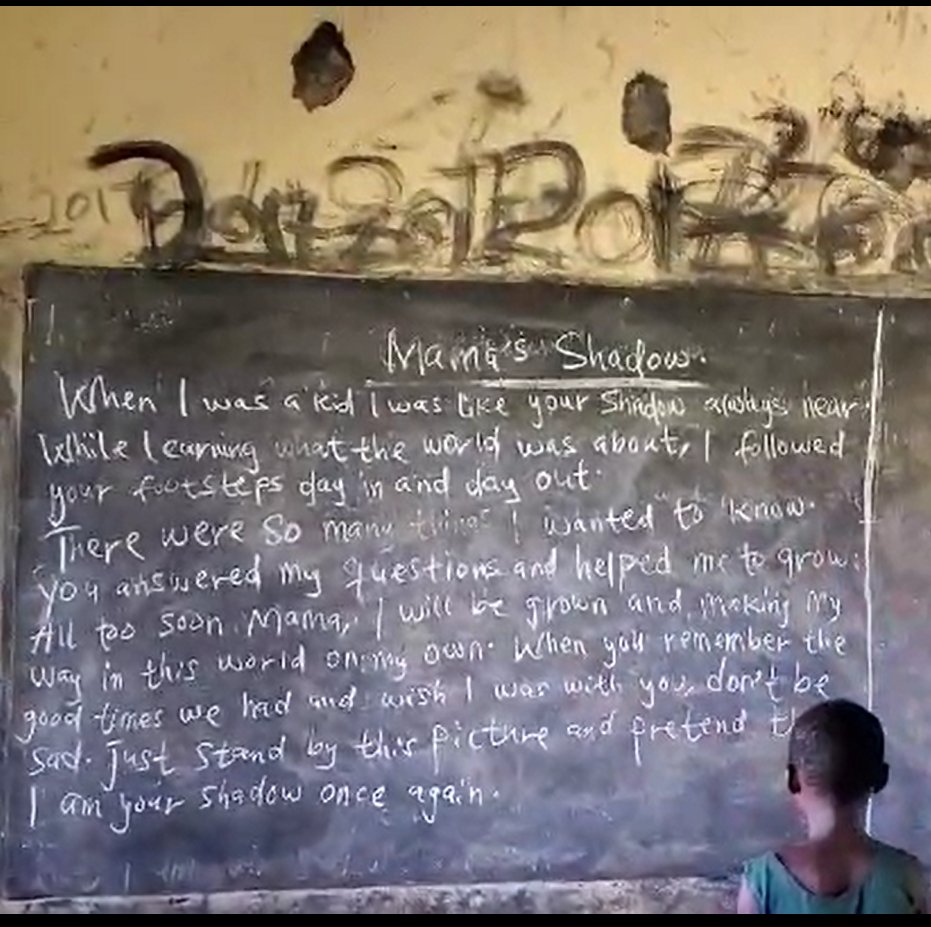 201
Mama's Shadow.
When I was a kid I was like your shadow always near.
While learning what the world was about, I followed
your footsteps day in and day out.
There were so many things I wanted to know.
you answered my questions and helped me to grow.
All too soon Mama, I will be grown and making my
way in this world on my own. When you remember the
good times we had and wish I was with you, don't be
sad. Just stand by this picture and pretend
I am your shadow once again.